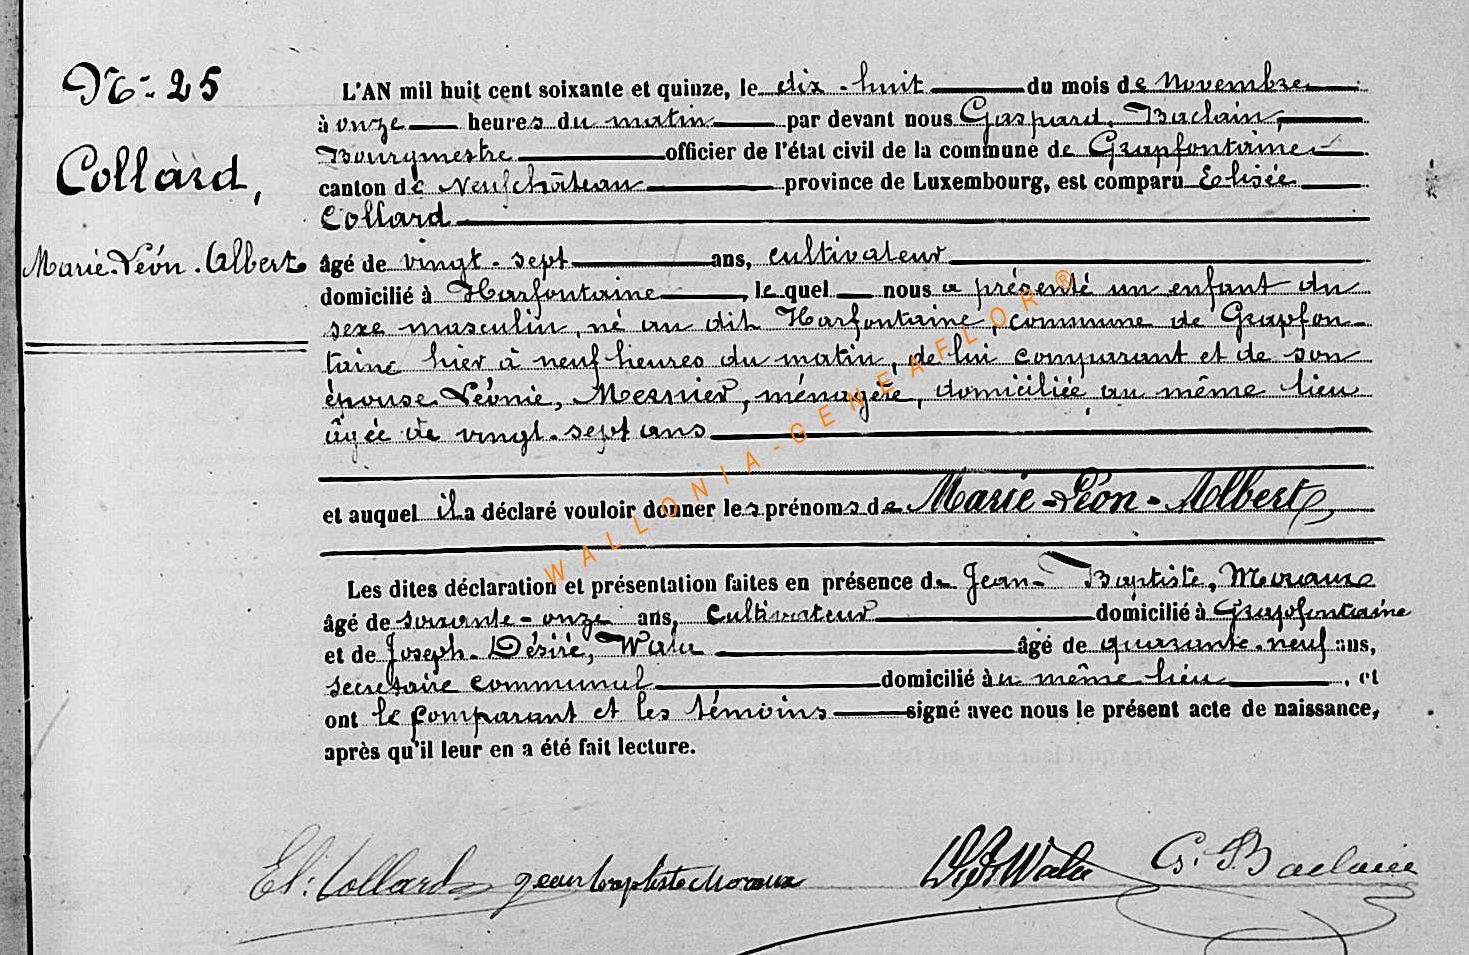 N° 25
Collard,
Marie-Léon-Albert
L'AN mil huit cent soixante et quinze, le dix-huit du mois de Novembre
à onze heures du matin par devant nous Gaspard, Baclain,
Bourgmestre officier de l'état civil de la commune de Grapfontaine
canton de Neufchâteau province de Luxembourg, est comparu Elisée
Collard
âgé de vingt-sept ans, cultivateur
domicilié à Harfontaine, lequel nous a présenté un enfant du
sexe masculin, né au dit Harfontaine, commune de Grapfon-
taine hier à neuf heures du matin, de lui comparant et de son
épouse Léonie, Mernier, ménagère, domiciliée au même lieu
âgée de vingt-sept ans
et auquel il a déclaré vouloir donner les prénoms de Marie-Léon-Albert,
Les dites déclaration et présentation faites en présence de Jean-Baptiste, Moraux
âgé de soixante-onze ans, cultivateur domicilié à Grapfontaine
et de Joseph-Désiré, Wala âgé de quarante-neuf ans,
secrétaire communal domicilié au même lieu, et
ont le comparant et les témoins signé avec nous le présent acte de naissance,
après qu'il leur en a été fait lecture.
El: Collard jean baptiste Moraux Wala G. Baclain
WALLONIA-GENEAFLOR®